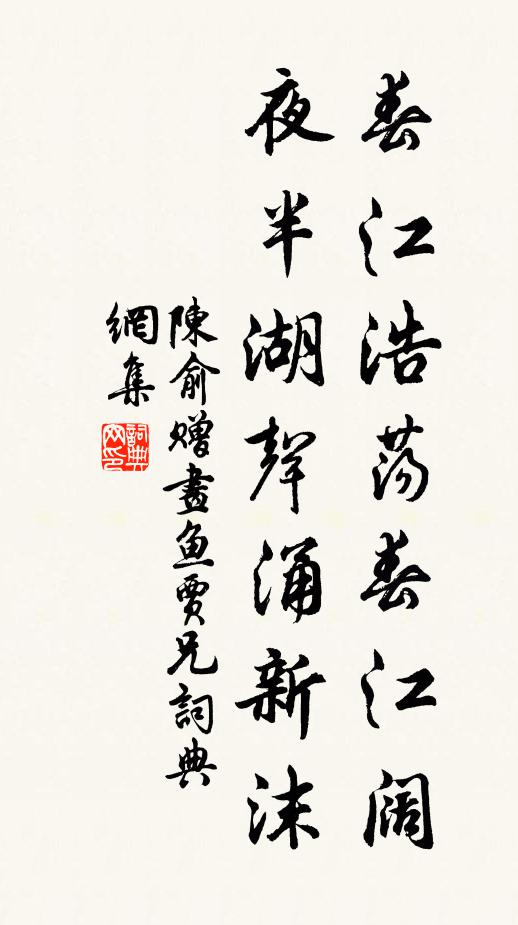 春江浩蕩春江阔
夜半湖聲涌新沫
陳俞赠畫鱼賈兄詞典
網集
詞典
网印